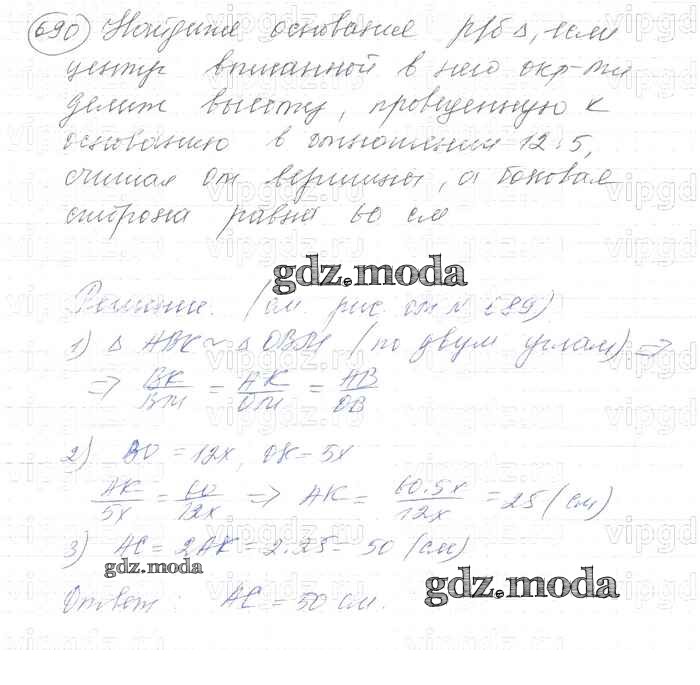 690 Найдите основание р/б Δ, если
центр вписанной в него окр-ти
делит высоту, проведенную к
основанию в отношении 12:5,
считая от вершины, а боковая
сторона равна 60 см
gdz.moda
Решение. (см. рис. от № 689)
1) Δ ABK ~ Δ OBM (по двум углам) =>
=> BK/BM = AK/OM = AB/OB
2) BO = 12x, OK = 5x
AK/5x = 60/12x => AK = 60·5x/12x = 25 (см)
3) AC = 2AK = 2·25 = 50 (см)
gdz.moda
Ответ: AC = 50 см.
gdz.moda